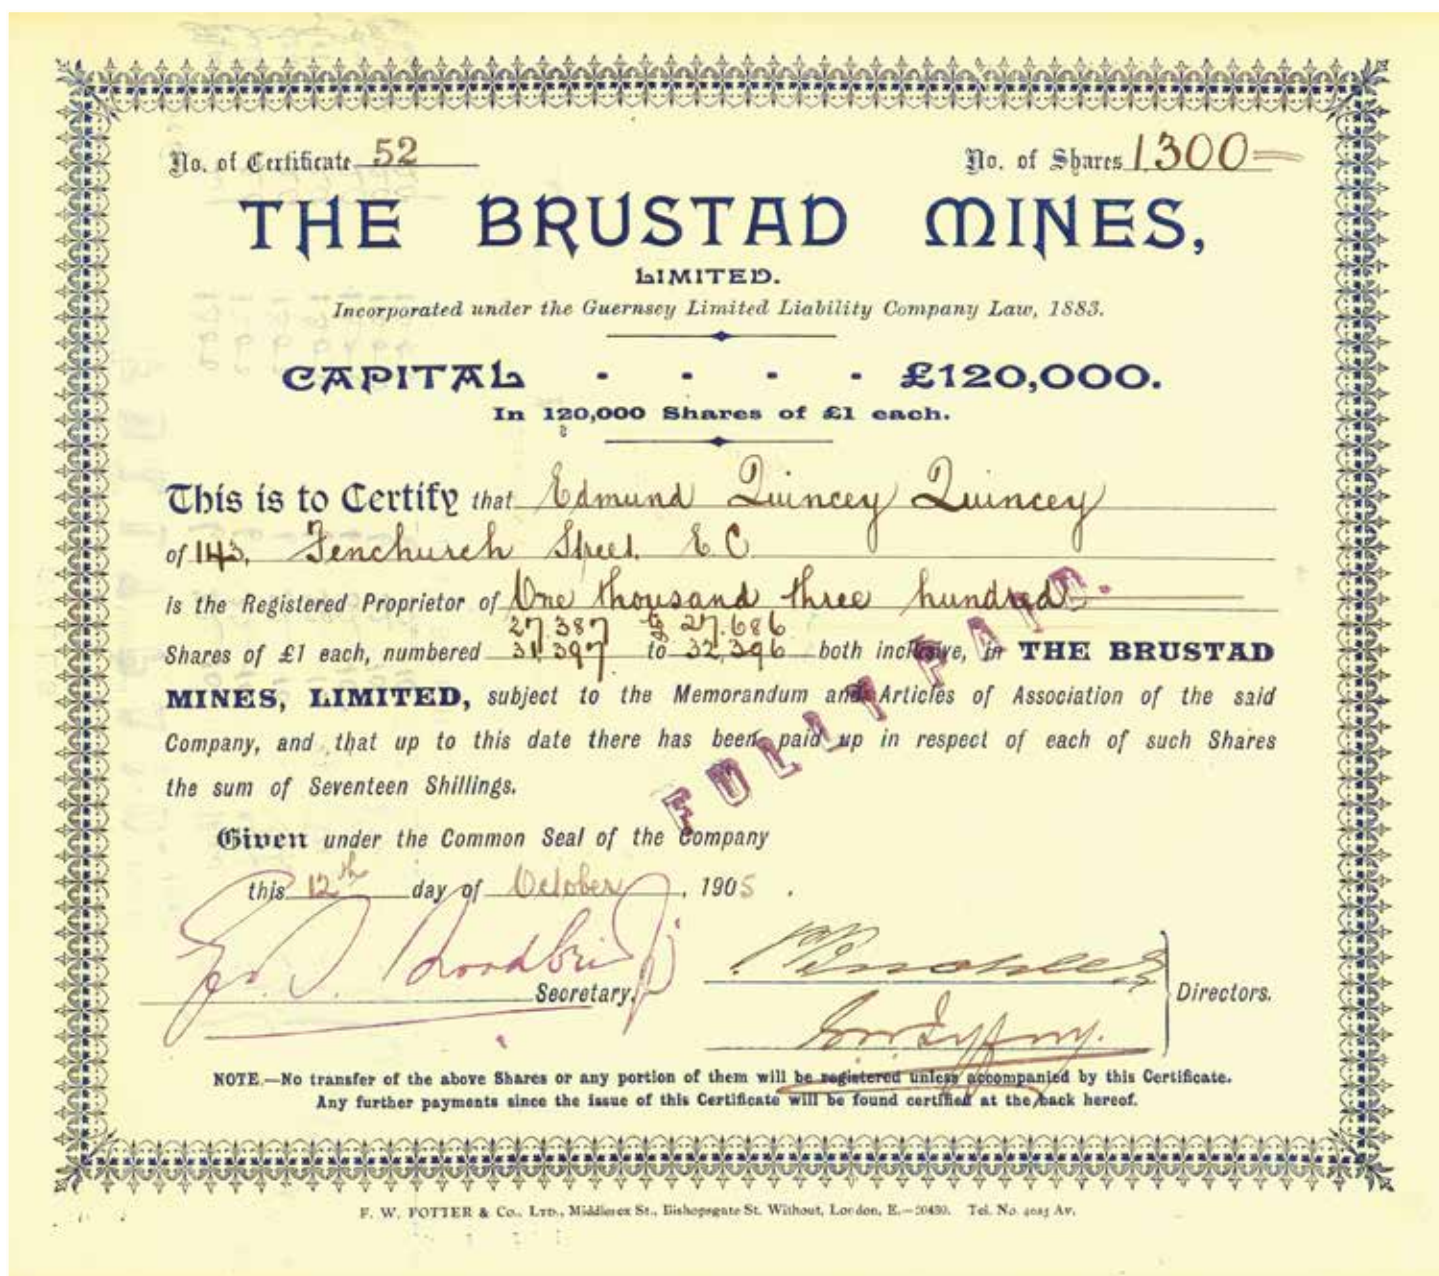 No. of Certificate 52
No. of Shares 1300
THE BRUSTAD MINES,
LIMITED.
Incorporated under the Guernsey Limited Liability Company Law, 1883.
CAPITAL . . . . £120,000.
In 120,000 Shares of £1 each.
This is to Certify that Edmund Quincey Quincey
of 143, Fenchurch Street. E.C.
is the Registered Proprietor of One thousand three hundred
27,387 to 27,686
Shares of £1 each, numbered 31,397 to 32,396 both inclusive, in THE BRUSTAD
MINES, LIMITED, subject to the Memorandum and Articles of Association of the said
Company, and that up to this date there has been paid up in respect of each of such Shares
the sum of Seventeen Shillings.
FULLY PAID.
Given under the Common Seal of the Company
this 12th day of October, 1905.
Secretary.
Directors.
NOTE.—No transfer of the above Shares or any portion of them will be registered unless accompanied by this Certificate.
Any further payments since the issue of this Certificate will be found certified at the back hereof.
F. W. POTTER & Co., LTD., Middlesex St., Bishopsgate St. Without, London, E.—20430. Tel. No. 4025 Av.